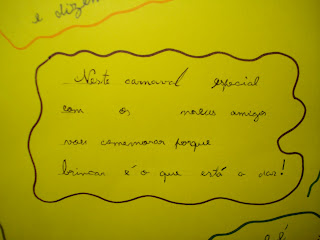 e dizem
Neste carnaval especial
com os meus amigos
vou comemorar porque
brincar é o que está a dar!